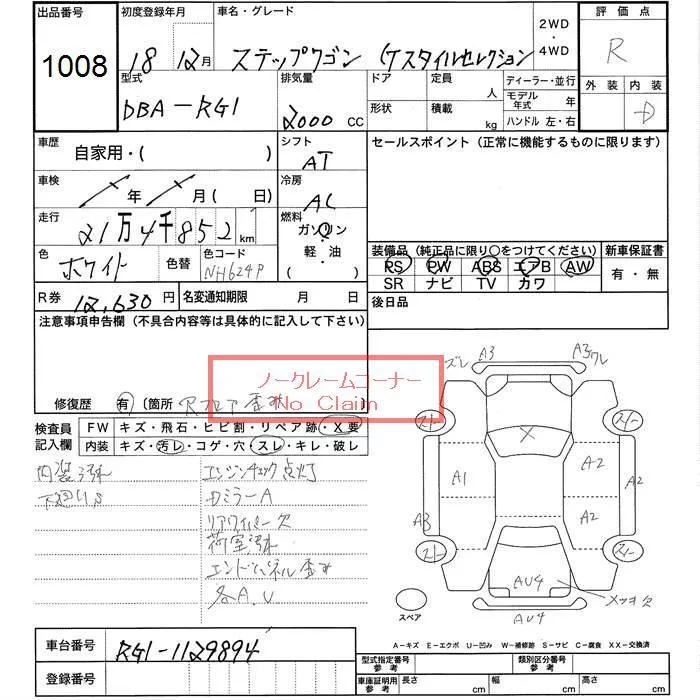 出品番号
1008
初度登録年月
18 12月
車名・グレード
ステップワゴン (ケスタイルセレクション
2WD
・
4WD
評価点
R
外装 内装
D
型式
DBA-RG1
排気量
2000 CC
ドア
形状
定員
人
積載
kg
ディーラー・並行
モデル年式 年
ハンドル 左・右
車歴
自家用・( )
シフト
AT
セールスポイント (正常に機能するものに限ります)
車検
年 月( 日)
冷房
AC
走行
21万4千852km
燃料
ガソリン
・
軽・油
( )
色
ホワイト
色替
色コード
NH624P
装備品 (純正品に限り〇をつけてください)
PS PW ABS エアB AW
SR ナビ TV カワ
新車保証書
有・無
R券 12,630円
名変通知期限 月 日
後日品
注意事項申告欄 (不具合内容等は具体的に記入して下さい)
ノークレームコーナー
No Claim
修復歴 有 (箇所 Rフロア歪み )
検査員
記入欄
FW キズ・飛石・ヒビ割・リペア跡・X要
内装 キズ・汚レ・コゲ・穴・スレ・キレ・破レ
内装汚れ
下廻りS
エンジンチェック点灯
Dミラー A
リアワイパー欠
荷室汚れ
エンドパネル歪み
各A.U
ズレ A3 A3 ワレ
スレ スレ
X
A1 A2 A2
A3 A2
スレ スレ
AU4
AU4
メッキ欠
スペア
A-キズ E-エクボ U-凹み W-補修跡 S-サビ C-腐食 XX-交換済
車台番号
RG1-1129894
登録番号
型式指定番号
参考
類別区分番号
参考
車庫証明用
参考
長さ cm
幅 cm
高さ cm